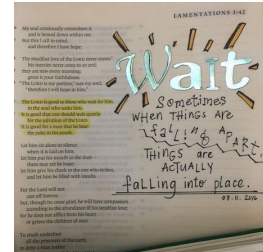 LAMENTATIONS 3:42
My soul continually remembers it
and is bowed down within me.
But this I call to mind,
and therefore I have hope:
The steadfast love of the LORD never ceases;
his mercies never come to an end;
they are new every morning;
great is your faithfulness.
"The LORD is my portion," says my soul,
"therefore I will hope in him."
The LORD is good to those who wait for him,
to the soul who seeks him.
It is good that one should wait quietly
for the salvation of the LORD.
It is good for a man that he bear
the yoke in his youth.
Let him sit alone in silence
when it is laid on him;
let him put his mouth in the dust—
there may yet be hope;
let him give his cheek to the one who strikes,
and let him be filled with insults.
For the Lord will not
cast off forever,
but, though he cause grief, he will have compassion
according to the abundance of his steadfast love;
for he does not afflict from his heart
or grieve the children of men.
To crush underfoot
all the prisoners of the earth,
Wait
Sometimes
WHEN THINGS ARE
falling APART,
THINGS are
ACTUALLY
falling into place.